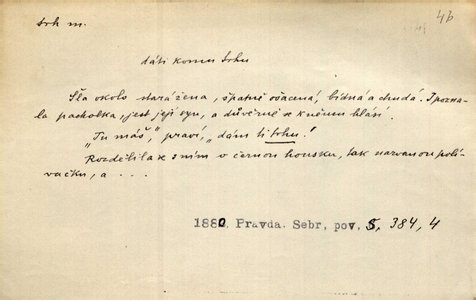 srh m.
dáti komu srhu
Šla okolo stará žena, špatně ošacená, bídná a chudá. I pozna-
la pacholka, jest její syn, a důvěrně se k němu hlásí.
„Tu máš," praví, „dám ti srhu!
Rozdělila se s ním o černou housku, tak nazvanou polí-
vačku, a . . .
1880. Pravda. Sebr. pov. 5, 384, 4